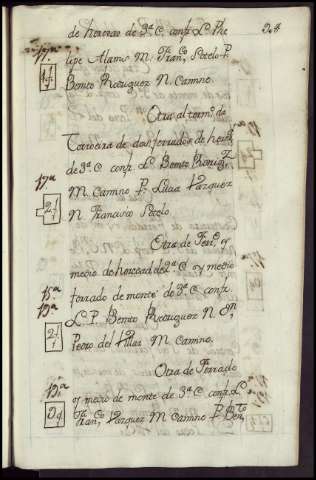 de herezas de 3ª C. confª L. Phe
lipe Alamo M. Franco Sotelo P.
Benito Rodriguez N. Camino.
Otra al termº de
Carreira de dos ferrados de herª
de 3ª C. confª L. Benito Rodrigz
M. Camino P. Lucia Vazquez
N. Francisco Sotelo
Otra de Ferrº y
medio de heredad de 3ª C. y medio
ferrado de monte de 3ª C. confª
L. P. Benito Rodriguez N. Dn
Pedro del Villar M. Camino.
Otra de Ferrado
y medio de monte de 3ª C. confª L.
Franco Vazquez M. Camino P. Bento